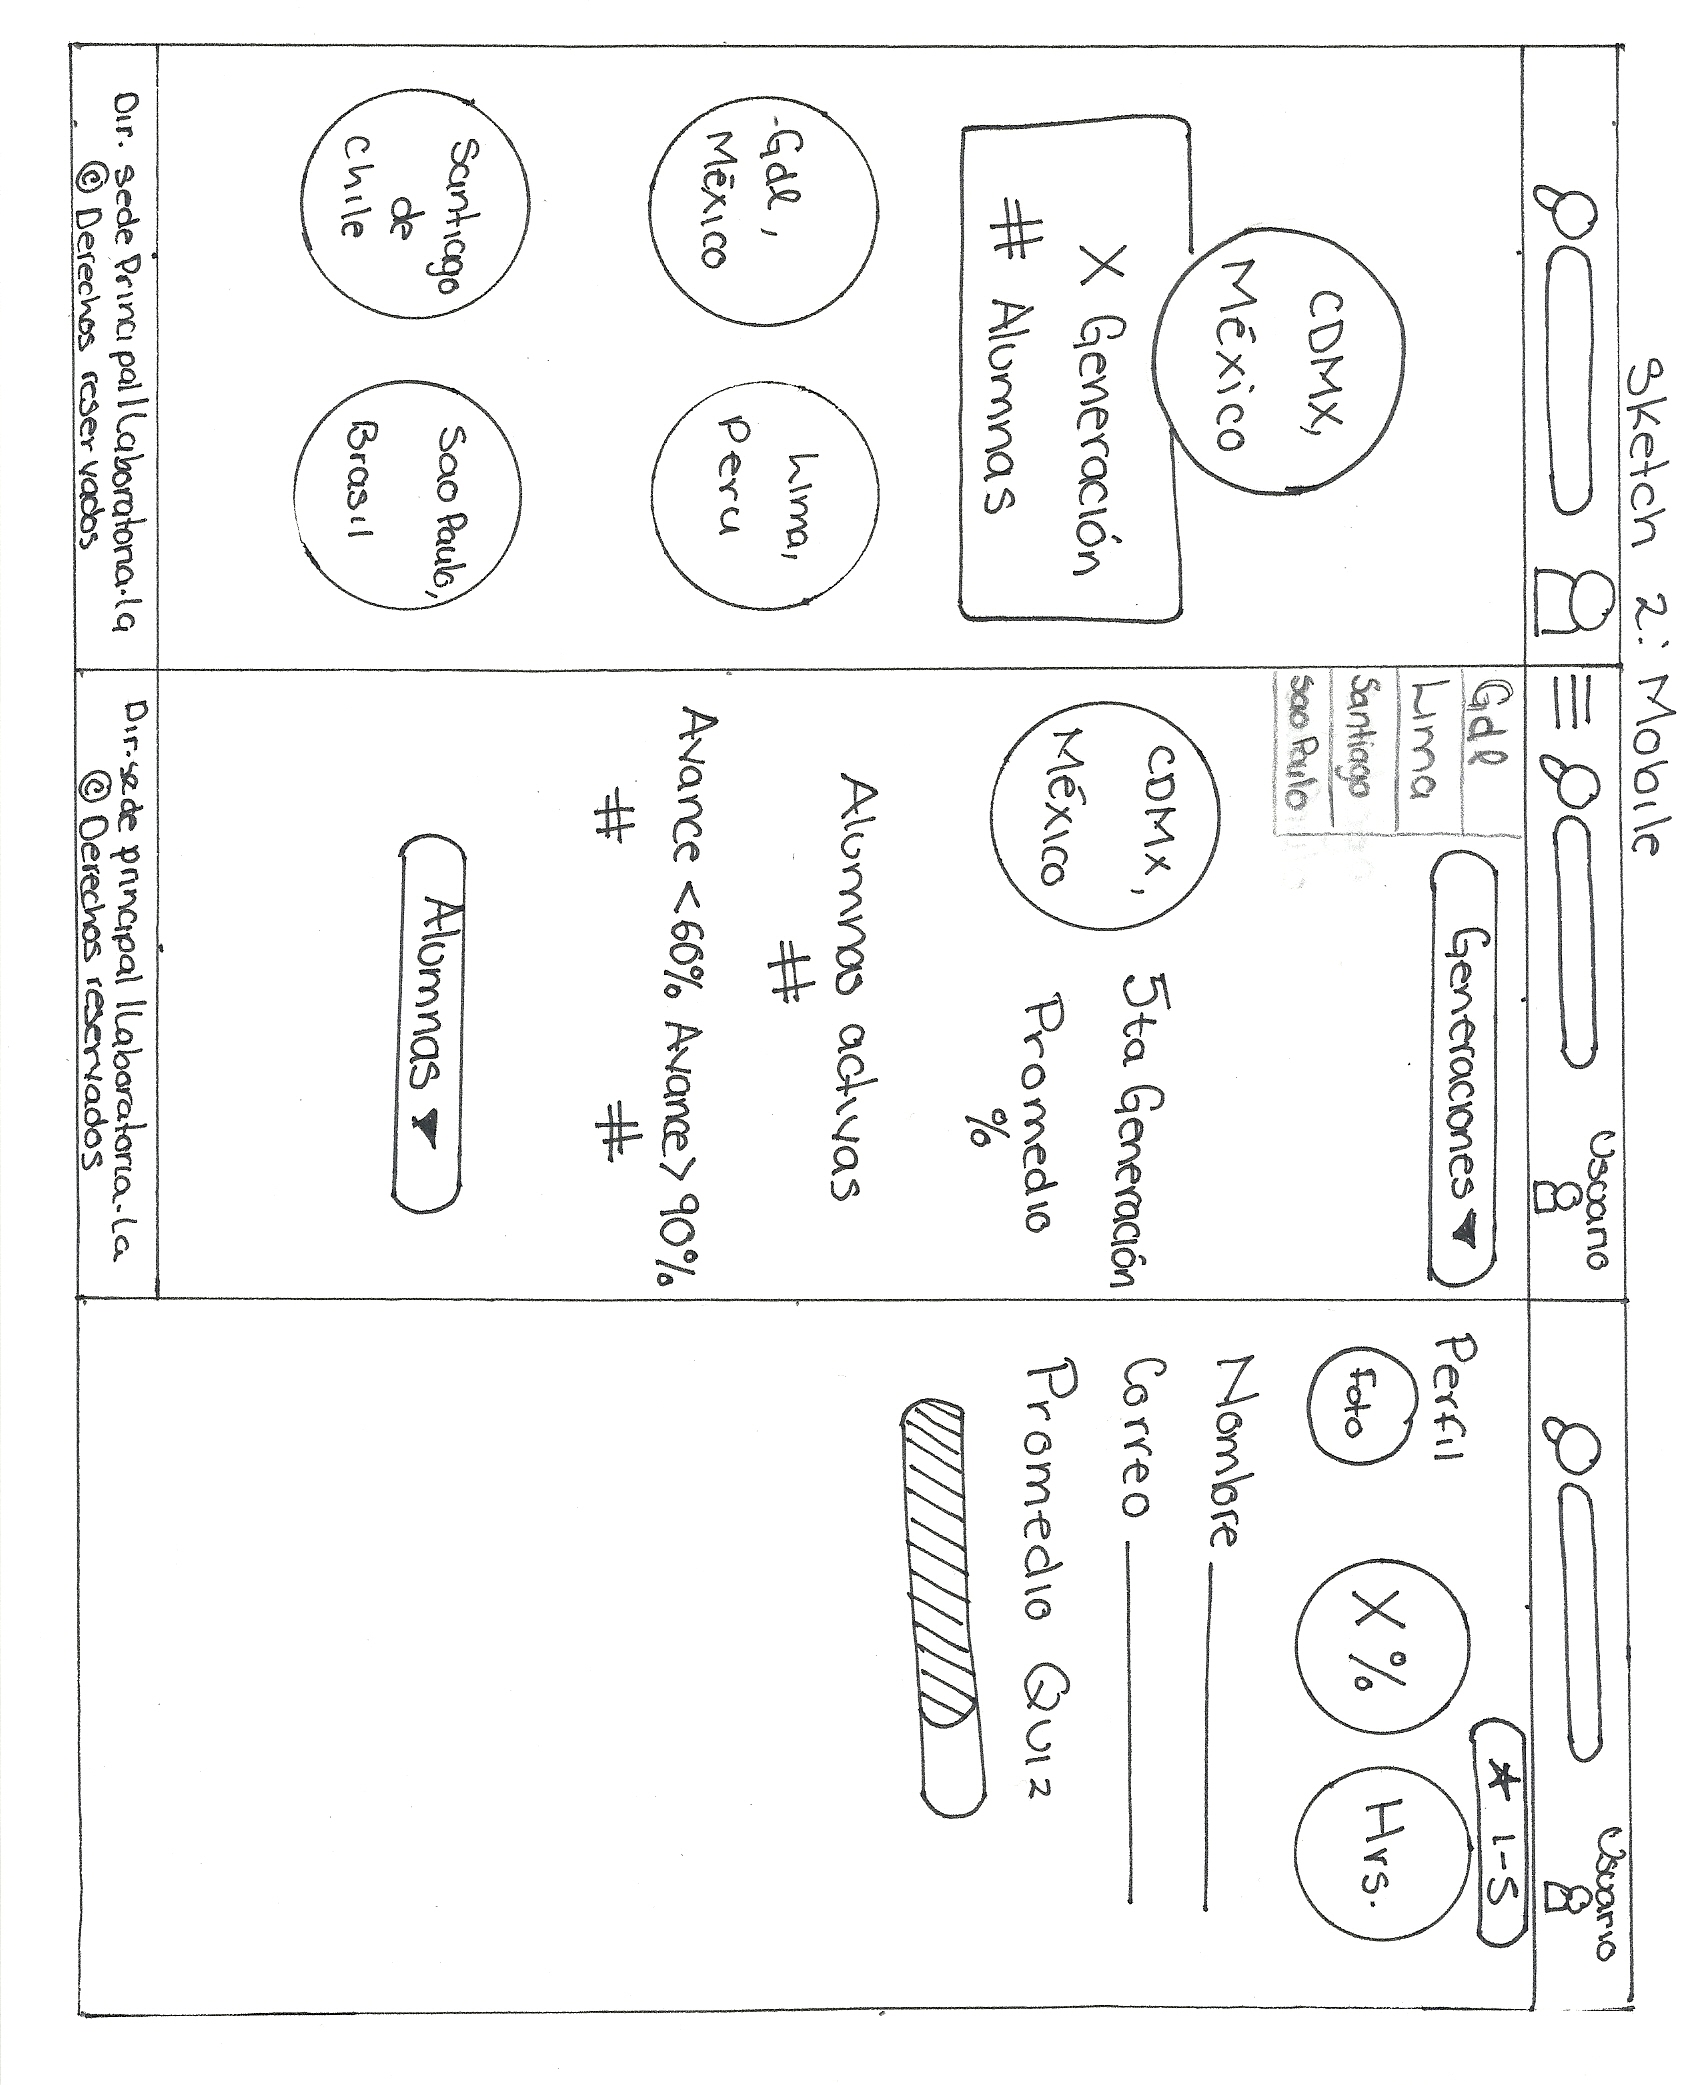 Sketch 2: Mobile
CDMX,
México
X Generación
# Alumnas
-Gdl,
México
Lima,
Peru
Santiago
de
Chile
Sao Paulo,
Brasil
Dir. sede Principal Laboratoria.la
© Derechos reservados
Usuario
Gdl
Lima
Santiago
Sao Paulo
Generaciones ▼
CDMX,
México
5ta Generación
Promedio
%
Alumnas activas
#
Avance <60% Avance >90%
# #
Alumnas ▼
Dir. sede principal Laboratoria.La
© Derechos reservados
Usuario
★ 1-5
Perfil
Foto
X %
Hrs.
Nombre
Correo
Promedio Quiz